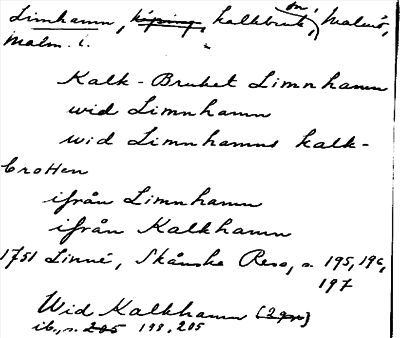 Limhamn, köping, kalkbruk, Malmö,
Malm. i.
Kalk-Bruket Limnhamn
wid Limnhamn
wid Limnhamns kalk-
brotten
ifrån Limnhamn
ifrån Kalkhamn
1751 Linné, Skånska Resa, s. 195, 196,
197
Wid Kalkhamn
ib., s. 205 198, 205